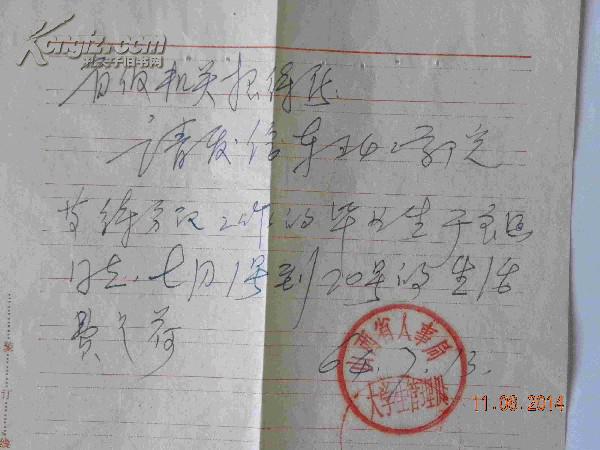 Kongfz.com
孔夫子旧书网
省级机关招待所
请发给东北工学院
等待分配工作的毕业生于
同志,七月1号到20号的生活
费为荷
65.7.13.
西省人事局
大学生管理
装
订
线
11.08.2014